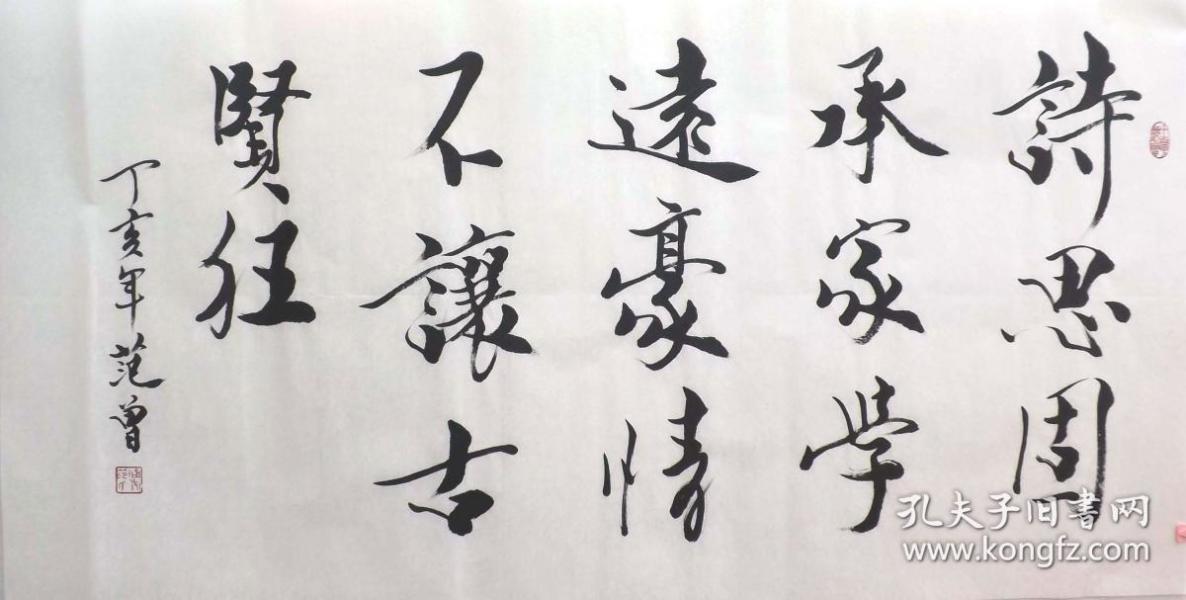 詩思固
承家学
遠豪情
不讓古
賢狂
丁亥年范曾
孔夫子旧書网
www.kongfz.com